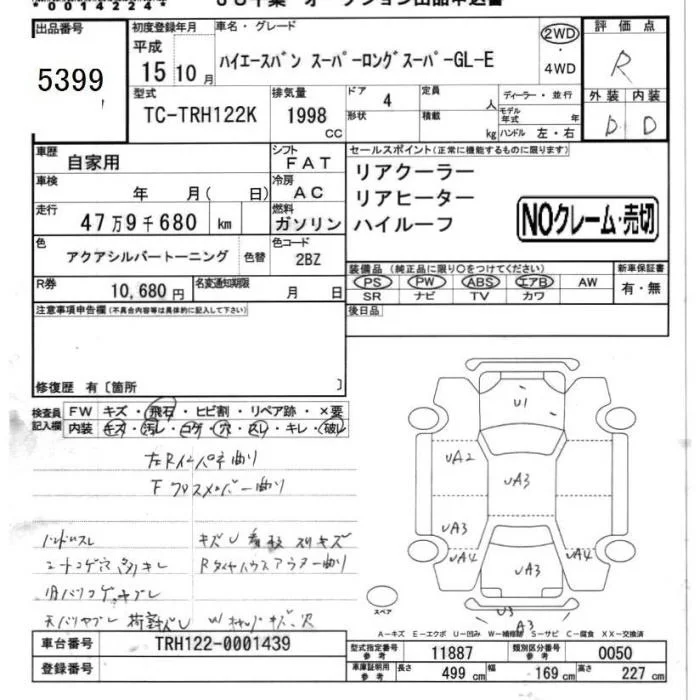 00142244
JU千葉 オークション出品申込書
出品番号
5399
初度登録年月
平成
15 10月
車名・グレード
ハイエースバン スーパーロングスーパーGL-E
2WD
・
4WD
評価点
R
型式
TC-TRH122K
排気量
1998
CC
ドア 4
形状
定員 人
積載 kg
ディーラー・並行
モデル年式 年
ハンドル 左・右
外装 内装
D D
車歴 自家用
シフト FAT
車検 年 月( 日)
冷房 AC
走行 47万9千680 km
燃料 ガソリン
色 アクアシルバートーニング 色替
色コード 2BZ
R券 10,680円
名変通知期限 月 日
セールスポイント(正常に機能するものに限ります)
リアクーラー
リアヒーター
ハイルーフ
NOクレーム・売切
装備品(純正品に限り○をつけてください)
PS PW ABS エアB AW
SR ナビ TV カワ
新車保証書
有・無
注意事項申告欄(不具合内容等は具体的に記入して下さい)
後日品
修復歴 有〔箇所 〕
検査員記入欄
FW キズ・飛石・ヒビ割・リペア跡・×要
内装 キズ・汚レ・コゲ・穴・スレ・キレ・破レ
左Rインパネ曲り
Fクロスメンバー曲り
ハンドルスレ
キズU 看板 スリキズ
シートコゲ穴 キレ
Rタイヤハウスアウター曲り
内バリコゲ
天バリヤブレ
U1
UA2
UA3
UA3
UA4
UA4
UA3
U3
A3
スペア
A-キズ E-エクボ U-凹み W-補修跡 S-サビ C-腐食 XX-交換済
車台番号 TRH122-0001439
登録番号
型式指定番号 参考 11887
類別区分番号 参考 0050
車庫証明用 参考 長さ 499 cm 幅 169 cm 高さ 227 cm